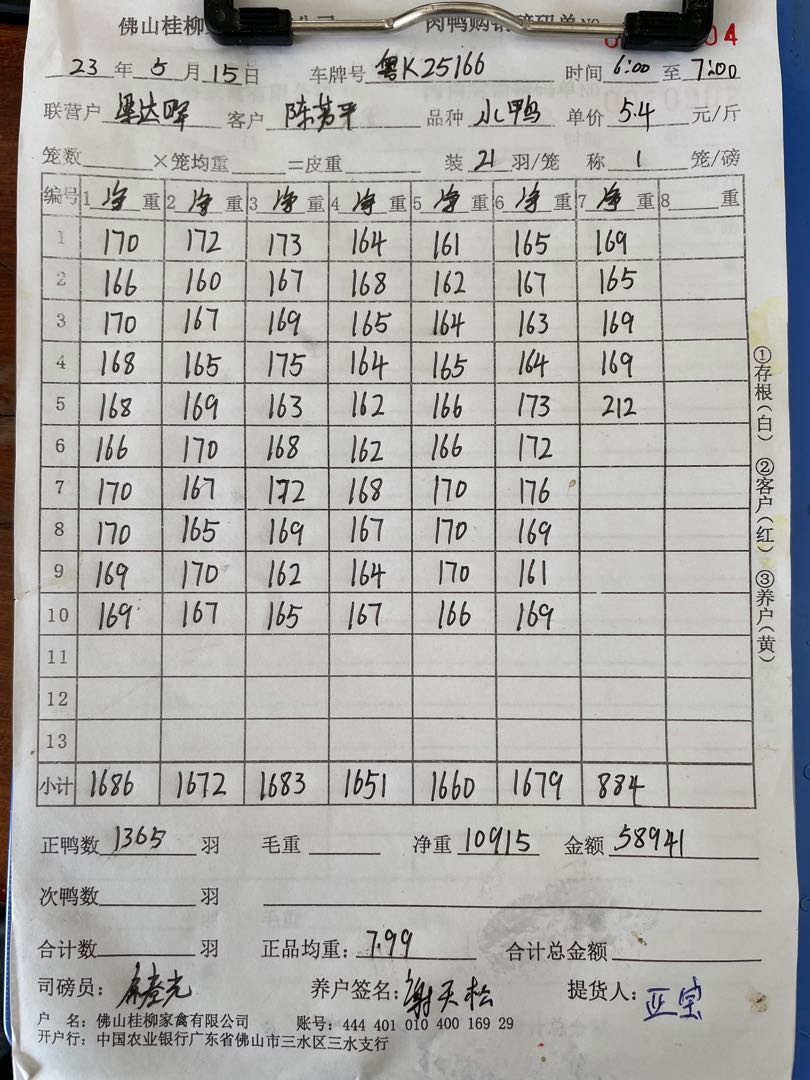 佛山桂柳 公司 肉鸭购销磅码单 NO 04
23 年 5 月 15 日 车牌号 粤K25166 时间 6:00 至 7:00
联营户 梁达晖 客户 陈芳平 品种 水鸭 单价 5.4 元/斤
笼数 ×笼均重 =皮重 装 21 羽/笼 称 1 笼/磅
编号 1 净 重 2 净 重 3 净 重 4 净 重 5 净 重 6 净 重 7 净 重 8 重
1 170 172 173 164 161 165 169
2 166 160 167 168 162 167 165
3 170 167 169 165 164 163 169
4 168 165 175 164 165 164 169
5 168 169 163 162 166 173 212
6 166 170 168 162 166 172
7 170 167 172 168 170 176
8 170 165 169 167 170 169
9 169 170 162 164 170 161
10 169 167 165 167 166 169
11
12
13
小计 1686 1672 1683 1651 1660 1679 884
正鸭数 1365 羽 毛重 净重 10915 金额 58941
次鸭数 羽
合计数 羽 正品均重: 7.99 合计总金额
司磅员: 养户签名: 谢天松 提货人: 亚宝
户 名: 佛山桂柳家禽有限公司 账号: 444 401 010 400 169 29
开户行: 中国农业银行广东省佛山市三水区三水支行
①存根(白) ②客户(红) ③养户(黄)